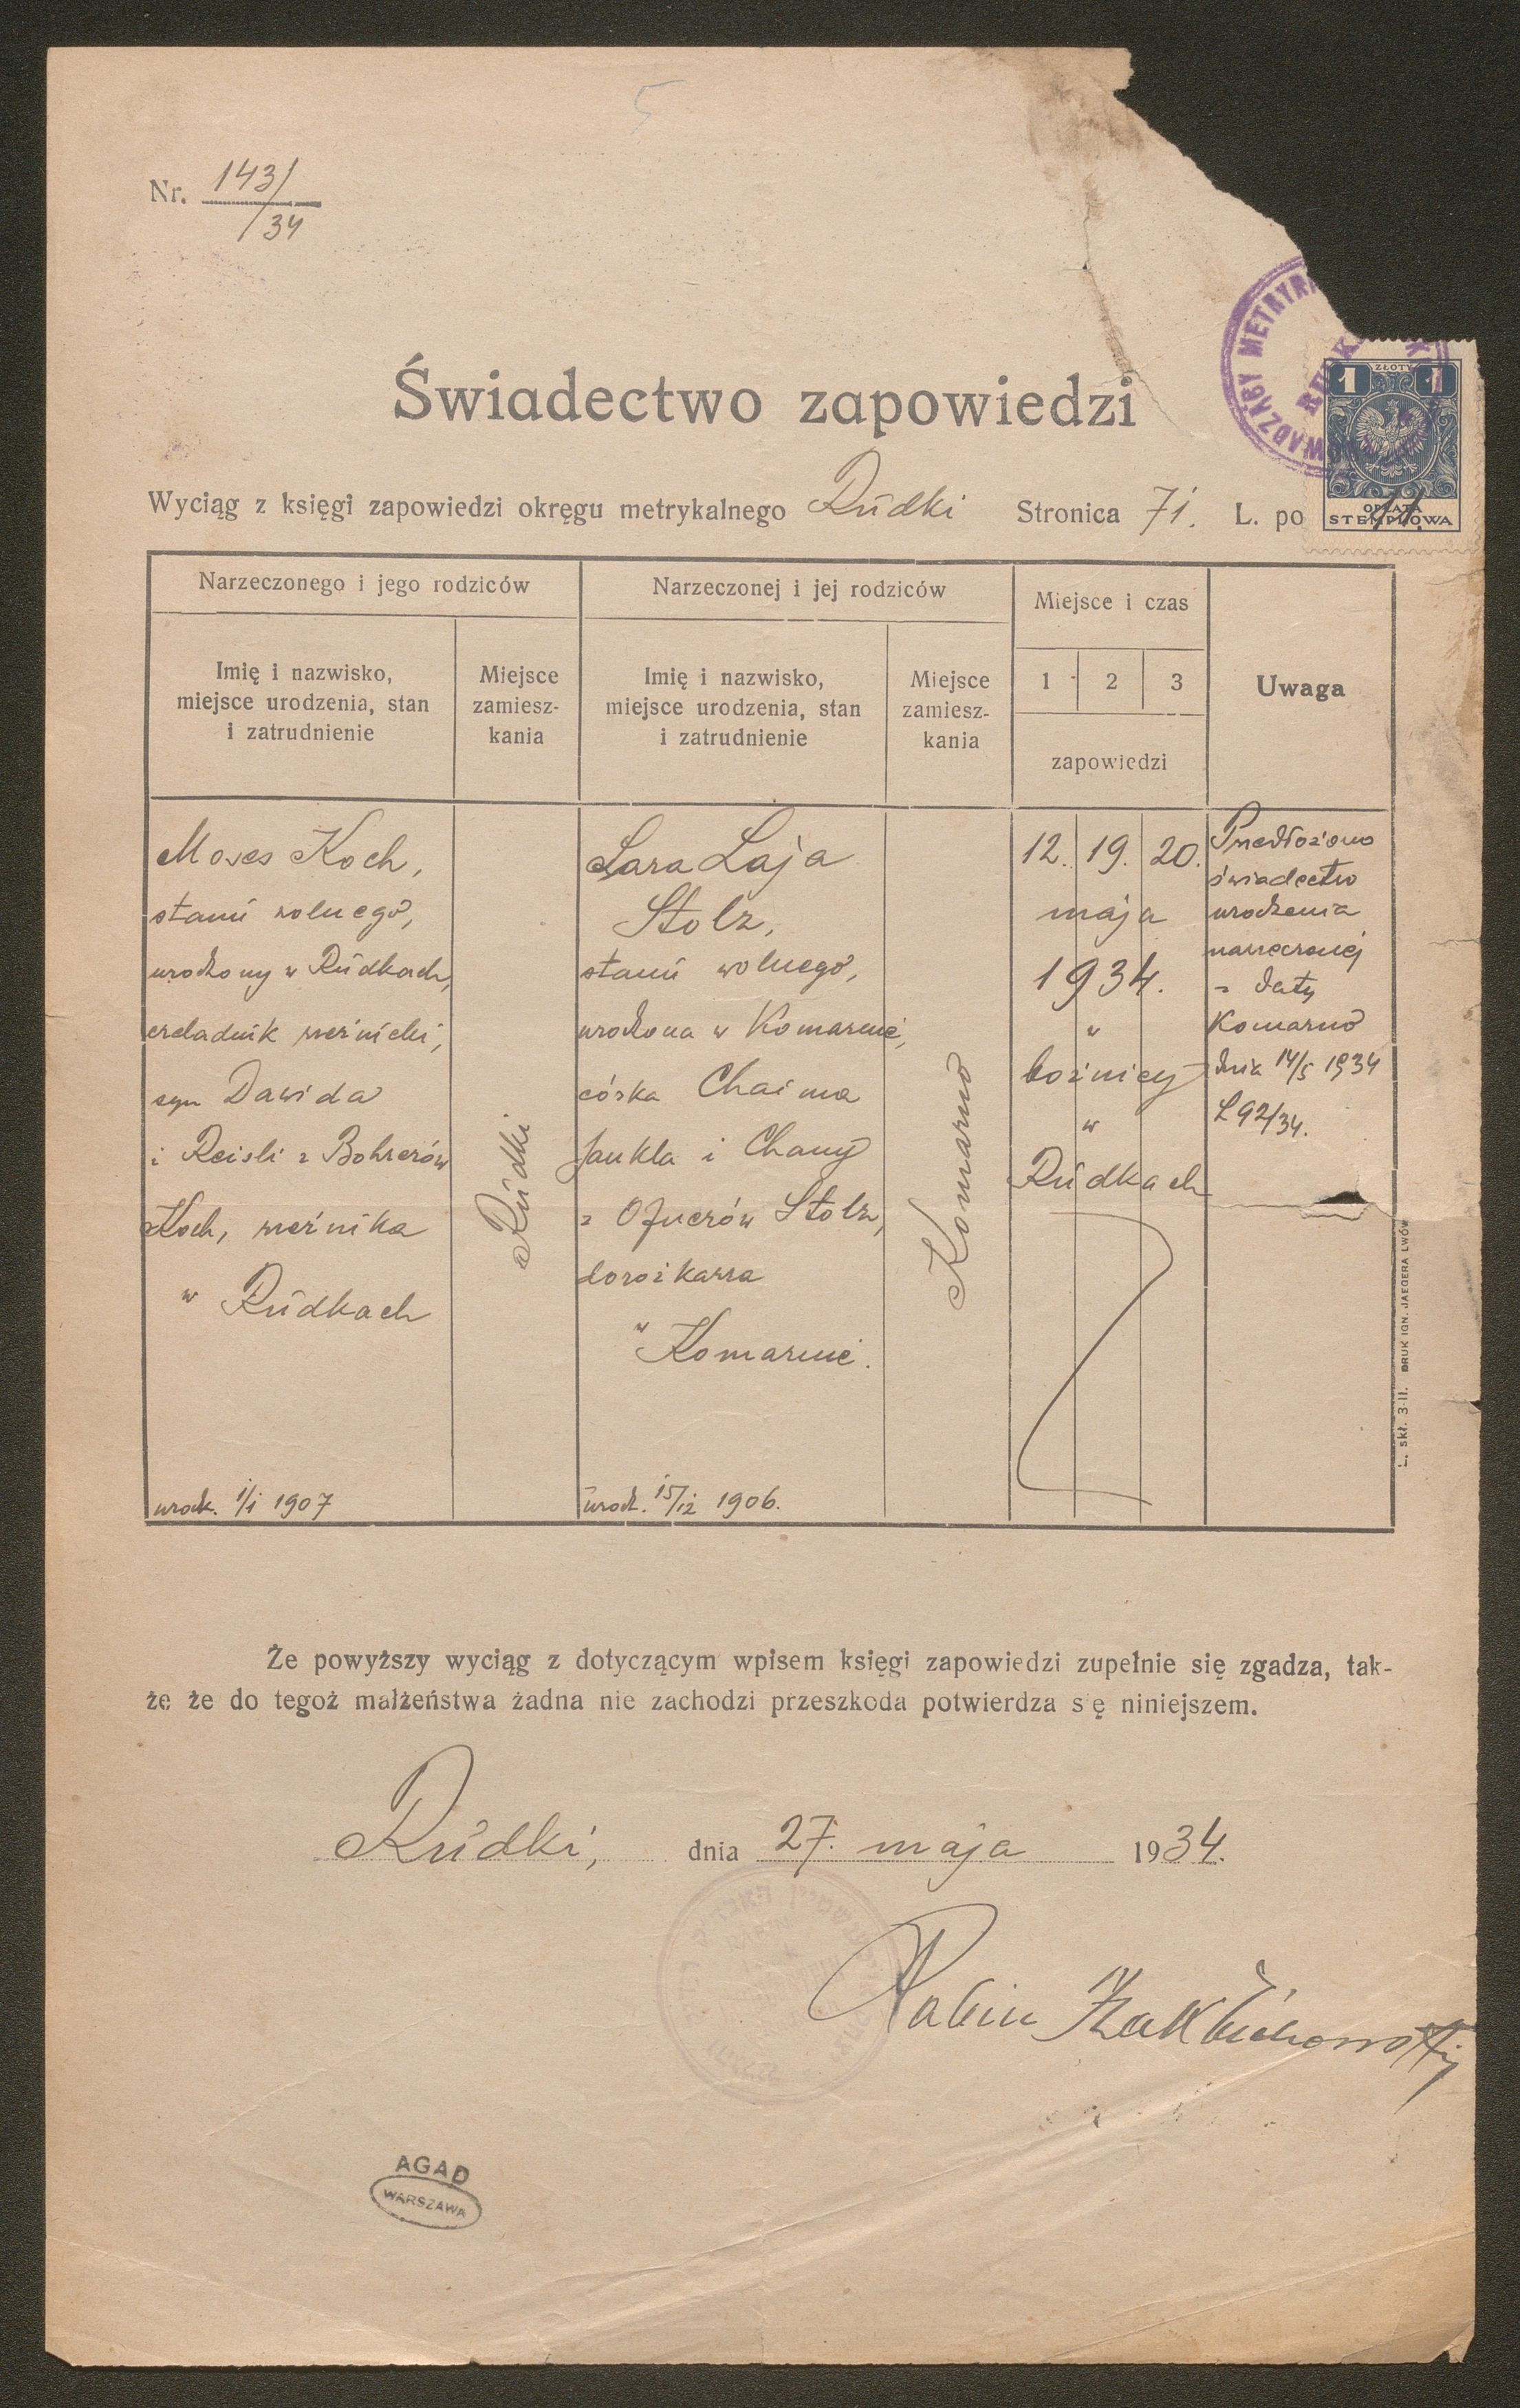 5
Nr. 143/
/34
WADZĄCY METRYK
1 ZŁOTY 1
OPŁATA
STEMPLOWA
Świadectwo zapowiedzi
Wyciąg z księgi zapowiedzi okręgu metrykalnego Rudki Stronica 71. L. po
Narzeczonego i jego rodziców
Narzeczonej i jej rodziców
Miejsce i czas
Uwaga
Imię i nazwisko,
miejsce urodzenia, stan
i zatrudnienie
Miejsce
zamiesz-
kania
Imię i nazwisko,
miejsce urodzenia, stan
i zatrudnienie
Miejsce
zamiesz-
kania
1 2 3
zapowiedzi
Moses Koch,
stanu wolnego,
urodzony w Rudkach,
czeladnik rzeźnicki,
syn Dawida
i Reisli z Bohrerów
Koch, rzeźnika
w Rudkach
urodz. 1/1 1907
Rudki
Sara Laja
Stolz,
stanu wolnego,
urodzona w Komarnie,
córka Chaima
Jankla i Chany
z Ofnerów Stolz,
dorożkarza
w Komarnie.
urodz. 15/12 1906.
Komarno
12. 19. 20.
maja
1934.
w
bożnicy
w
Rudkach
Przedłożono
świadectwo
urodzenia
narzeczonej
z daty
Komarno
dnia 14/5 1934
L 92/34.
L. skł. 3-II. DRUK IGN. JAEGERA LWÓW
Że powyższy wyciąg z dotyczącym wpisem księgi zapowiedzi zupełnie się zgadza, tak-
że że do tegoż małżeństwa żadna nie zachodzi przeszkoda potwierdza s ę niniejszem.
Rudki, dnia 27. maja 1934.
Rabin
AGAD
WARSZAWA